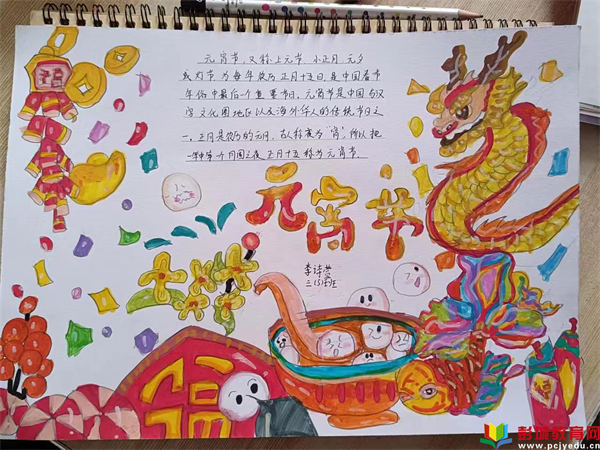 元宵节,又称上元节、小正月、元夕
或灯节,为每年农历正月十五日,是中国春节
年俗中最后一个重要节日。元宵节是中国与汉
字文化圈地区以及海外华人的传统节日之
一。正月是农历的元月,古人称夜为“宵”,所以把
一年中第一个月圆之夜正月十五称为元宵节。
元宵节
三(5)班
福
彭城教育网
www.pcjyedu.cn